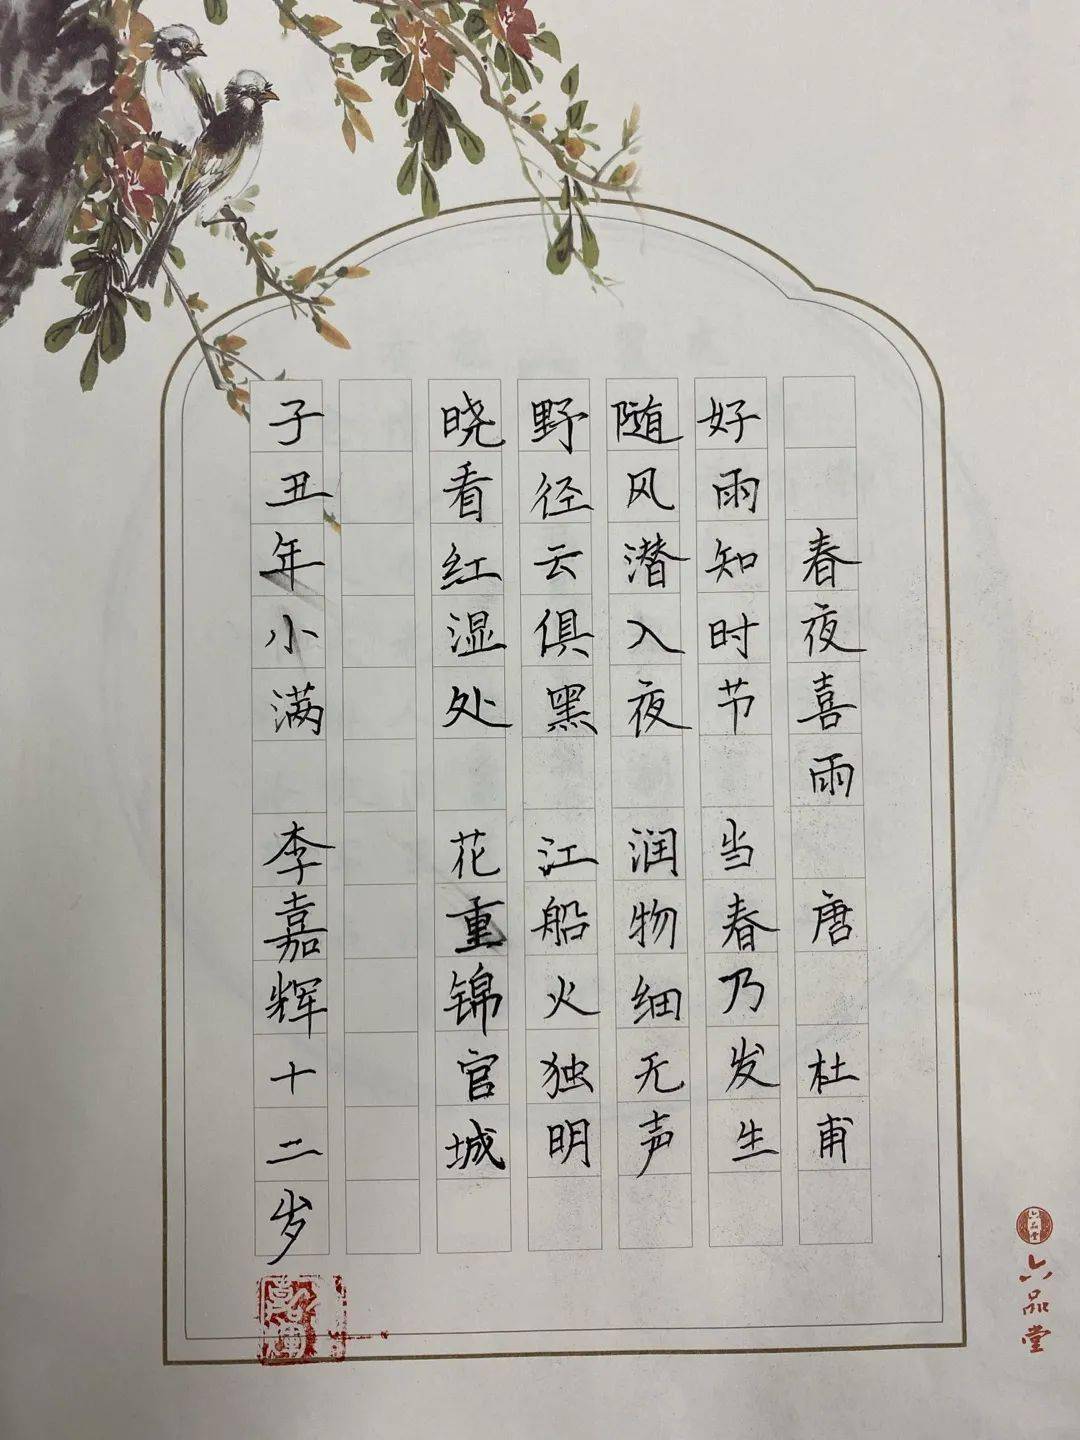 春夜喜雨 唐 杜甫
好雨知时节 当春乃发生
随风潜入夜 润物细无声
野径云俱黑 江船火独明
晓看红湿处 花重锦官城
子丑年小满 李嘉辉十二岁
六品堂